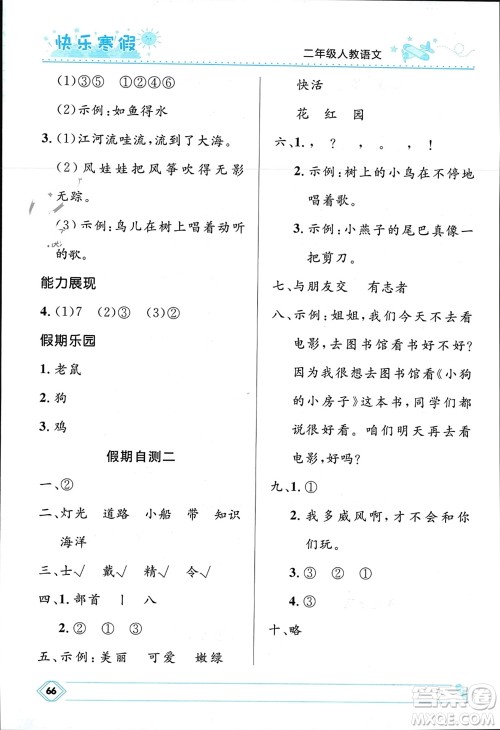 快乐寒假
二年级人教语文
(1)③⑤ (2)①④⑥
(2)示例:如鱼得水
3. (1)江河流哇流,流到了大海。
(2)风娃娃把风筝吹得无影
无踪。
(3)示例:鸟儿在树上唱着动听
的歌。
能力展现
4. (1)7 (2)③ (3)②
假期乐园
1. 老鼠
2. 狗
3. 鸡
假期自测二
一、②
二、灯光 道路 小船 带 知识
海洋
三、士√ 戴√ 精√ 令√
四、1. 部首 丨 八
2. ② ① ② ①
五、示例:美丽 可爱 嫩绿
66
快活
花 红 园
六、1. , ? , 。 !
2. 示例:树上的小鸟在不停地
唱着歌。
3. 示例:小燕子的尾巴真像一
把剪刀。
七、与朋友交 有志者
八、示例:姐姐,我们今天不去看
电影,去图书馆看书好不好?
因为我想去图书馆看《小狗
的小房子》这本书,同学们都
说很好看。咱们明天再去看
电影,好吗?
九、1. ①
2. 我多威风啊,你们可以和我
们玩。
3. ③ ① ②
4. ③
十、略
MXQE.COM